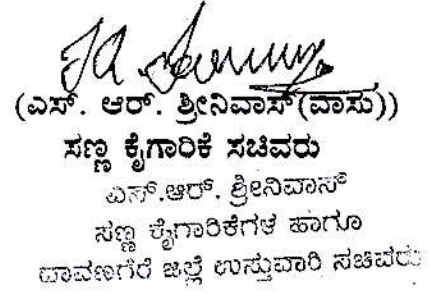 (ಎಸ್. ಆರ್. ಶ್ರೀನಿವಾಸ್(ವಾಸು))
ಸಣ್ಣ ಕೈಗಾರಿಕೆ ಸಚಿವರು
ಎಸ್.ಆರ್. ಶ್ರೀನಿವಾಸ್
ಸಣ್ಣ ಕೈಗಾರಿಕೆಗಳ ಹಾಗೂ
ದಾವಣಗೆರೆ ಜಿಲ್ಲೆ ಉಸ್ತುವಾರಿ ಸಚಿವರು